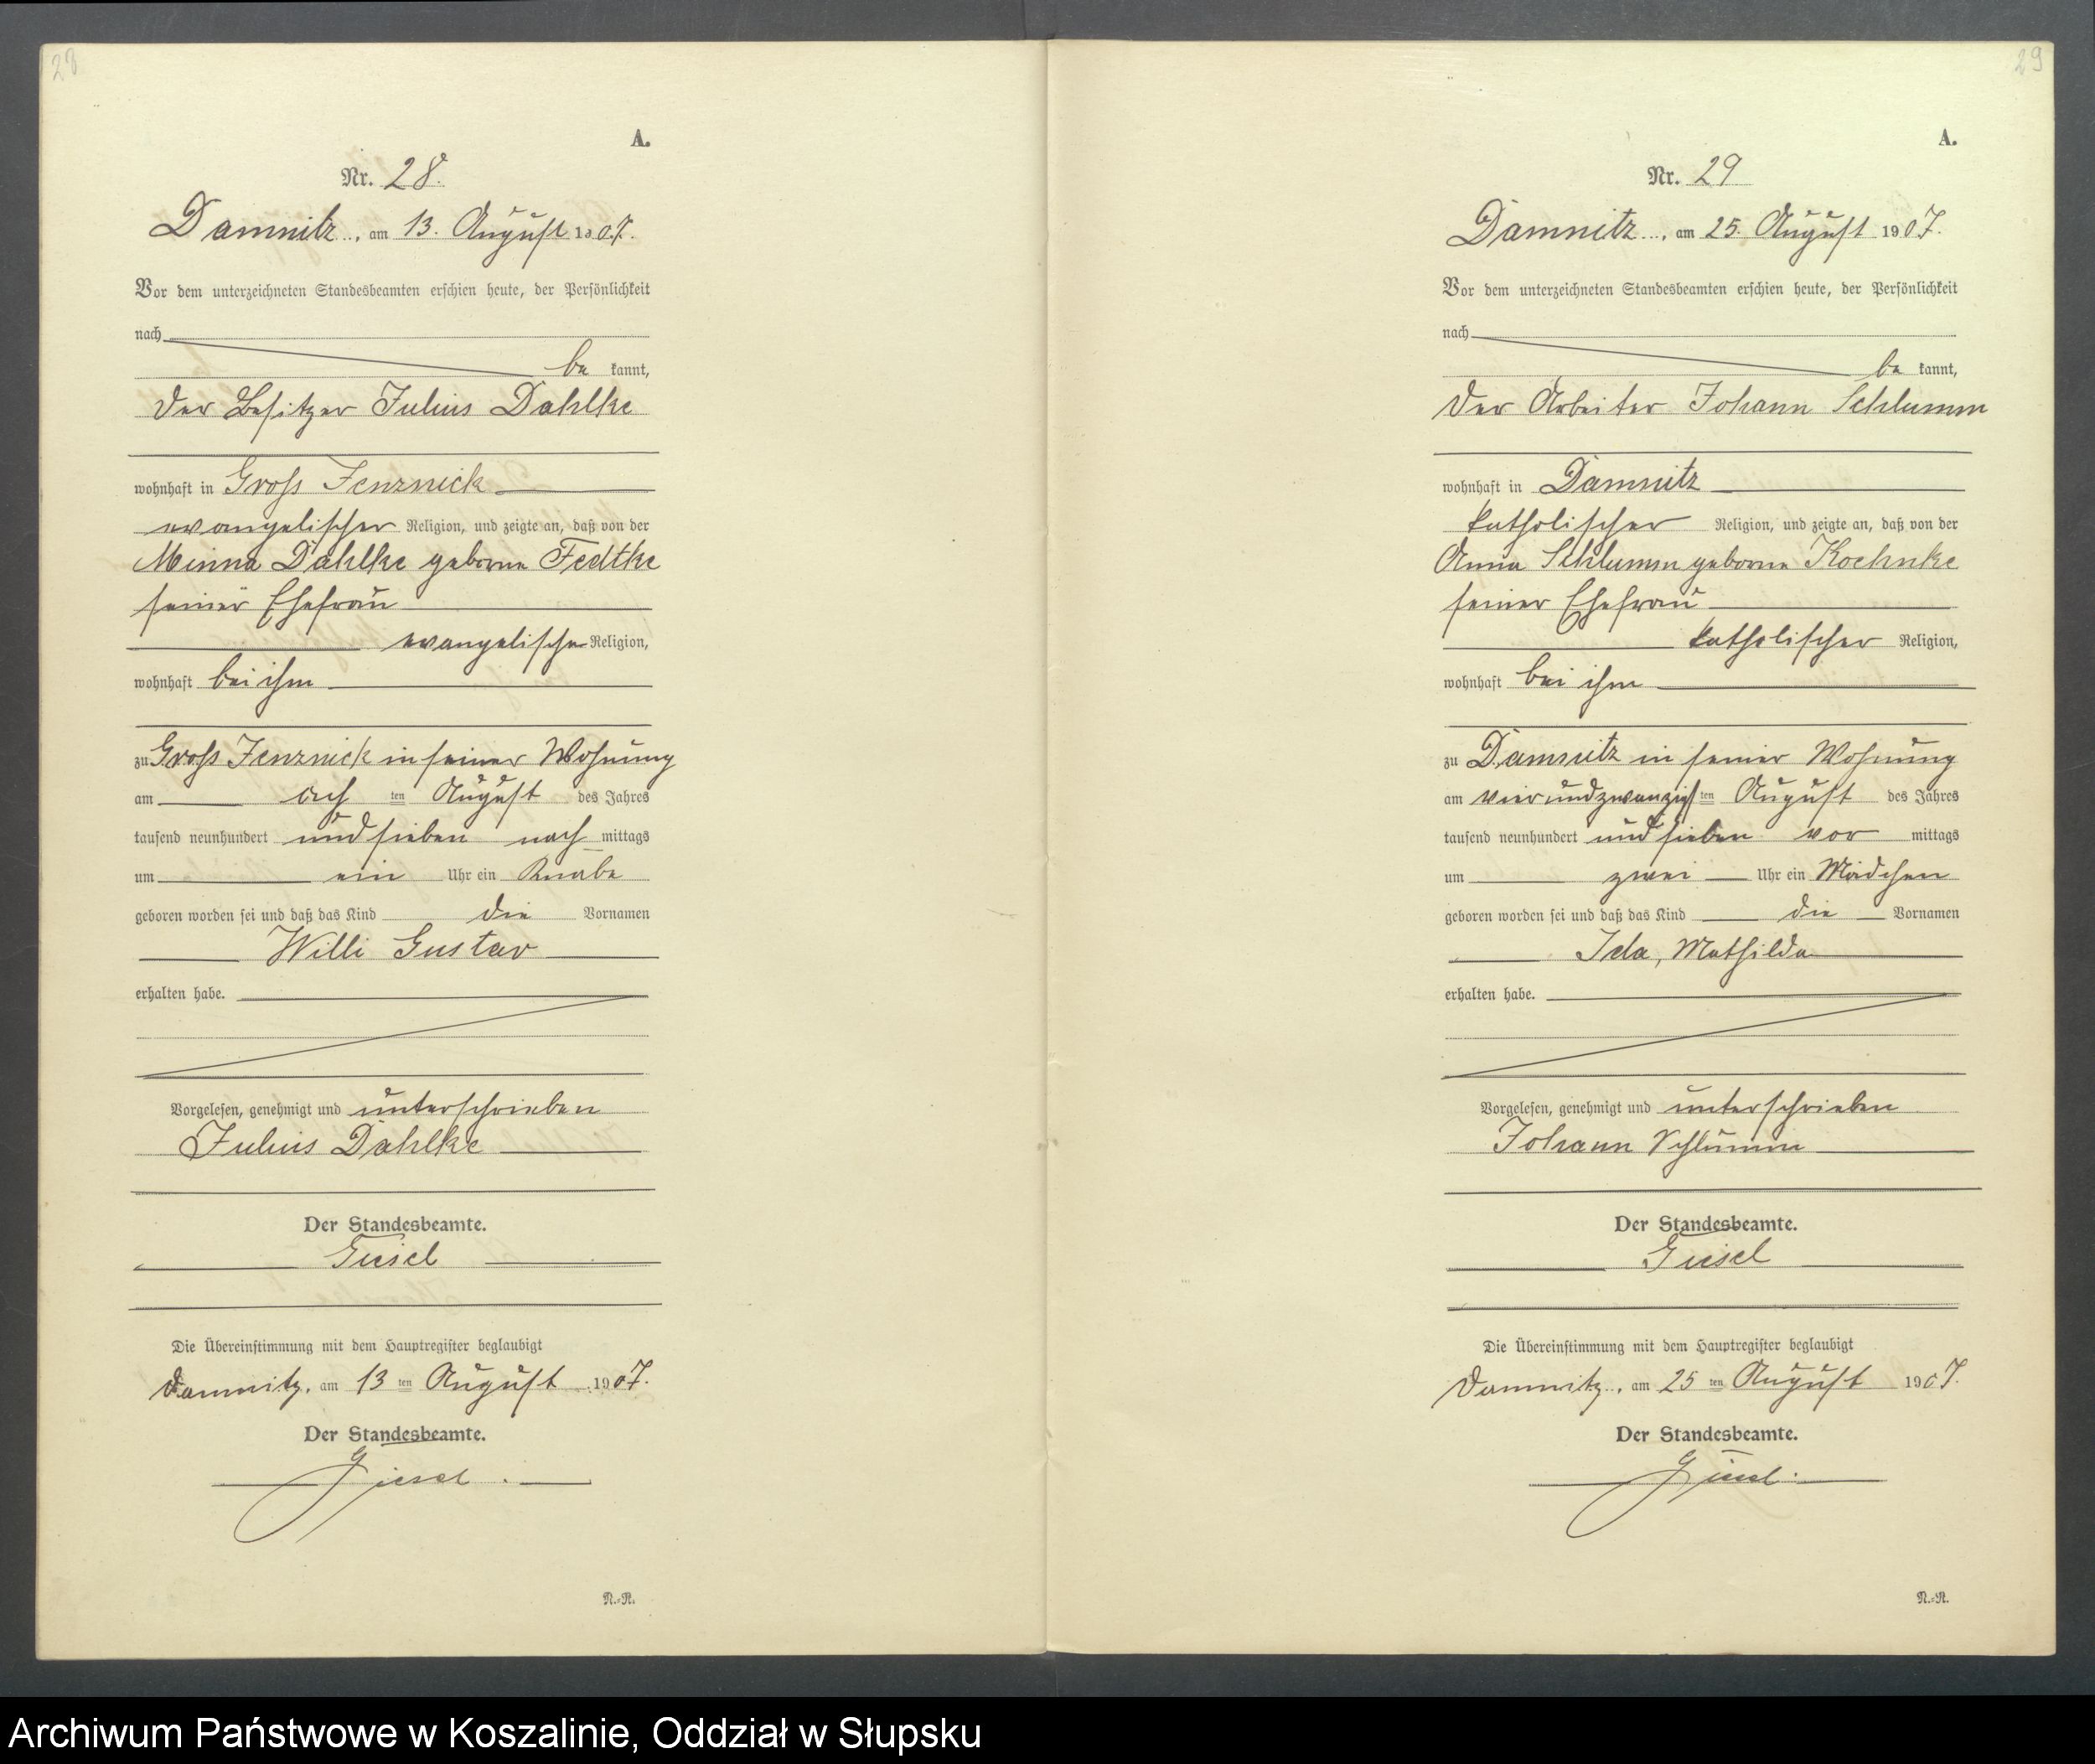 28
A.
Nr. 28.
Damnitz, am 13. August 1907.
Vor dem unterzeichneten Standesbeamten erschien heute, der Persönlichkeit
nach
be kannt,
der Besitzer Julius Dahlke
wohnhaft in Gross Jenznick
evangelischer Religion, und zeigte an, daß von der
Minna Dahlke geborne Fedtke
seiner Ehefrau
evangelischer Religion,
wohnhaft bei ihm
zu Gross Jenznick in seiner Wohnung
am acht ten August des Jahres
tausend neunhundert und sieben nach mittags
um ein Uhr ein Knabe
geboren worden sei und daß das Kind die Vornamen
Willi Gustav
erhalten habe.
Vorgelesen, genehmigt und unterschrieben
Julius Dahlke
Der Standesbeamte.
Giesel
Die Übereinstimmung mit dem Hauptregister beglaubigt
Damnitz, am 13 ten August 1907.
Der Standesbeamte.
Giesel.
N.=R.
29
A.
Nr. 29
Damnitz, am 25. August 1907.
Vor dem unterzeichneten Standesbeamten erschien heute, der Persönlichkeit
nach
be kannt,
der Arbeiter Johann Schlumm
wohnhaft in Damnitz
katholischer Religion, und zeigte an, daß von der
Anna Schlumm geborne Koehnke
seiner Ehefrau
katholischer Religion,
wohnhaft bei ihm
zu Damnitz in seiner Wohnung
am vierundzwanzigsten August des Jahres
tausend neunhundert und sieben vor mittags
um zwei Uhr ein Mädchen
geboren worden sei und daß das Kind die Vornamen
Ida, Mathilda
erhalten habe.
Vorgelesen, genehmigt und unterschrieben
Johann Schlumm
Der Standesbeamte.
Giesel
Die Übereinstimmung mit dem Hauptregister beglaubigt
Damnitz, am 25 ten August 1907.
Der Standesbeamte.
Giesel.
N.=R.
Archiwum Państwowe w Koszalinie, Oddział w Słupsku